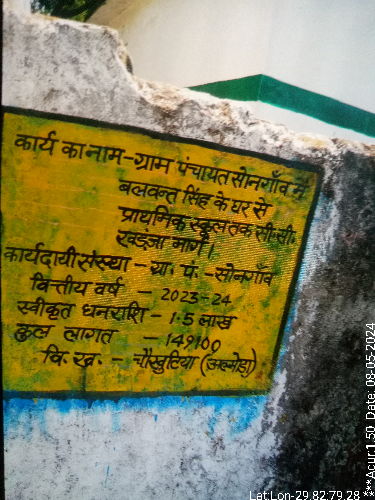 कार्य का नाम-ग्राम पंचायत सोनगाँव में
बलवन्त सिंह के घर से
प्राथमिक स्कूल तक सी.सी.
खड़ंजा मार्ग।
कार्यदायी संस्था - ग्रा. पं. - सोनगाँव
वित्तीय वर्ष - 2023-24
स्वीकृत धनराशि - 1.5 लाख
कुल लागत - 149100
वि. ख. - चौखुटिया (अल्मोड़ा)
Lat:Lon-29.82:79.28 ***Acur:1.50 Date: 08-05-2024